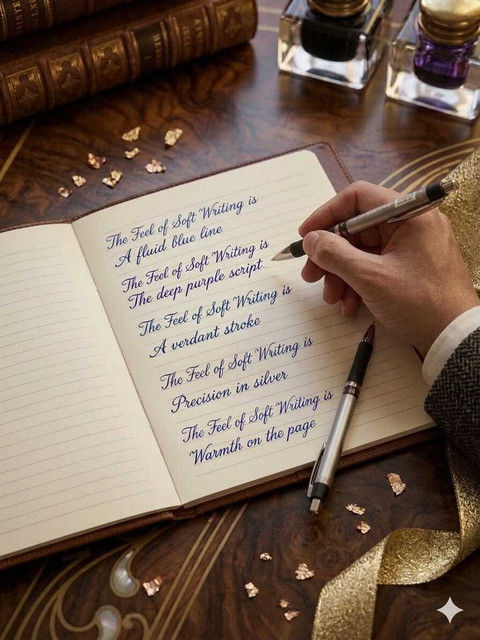 The Feel of Soft Writing is
A fluid blue line
The Feel of Soft Writing is
The deep purple script.
The Feel of Soft Writing is
A verdant stroke
The Feel of Soft Writing is
Precision in silver
The Feel of Soft Writing is
Warmth on the page